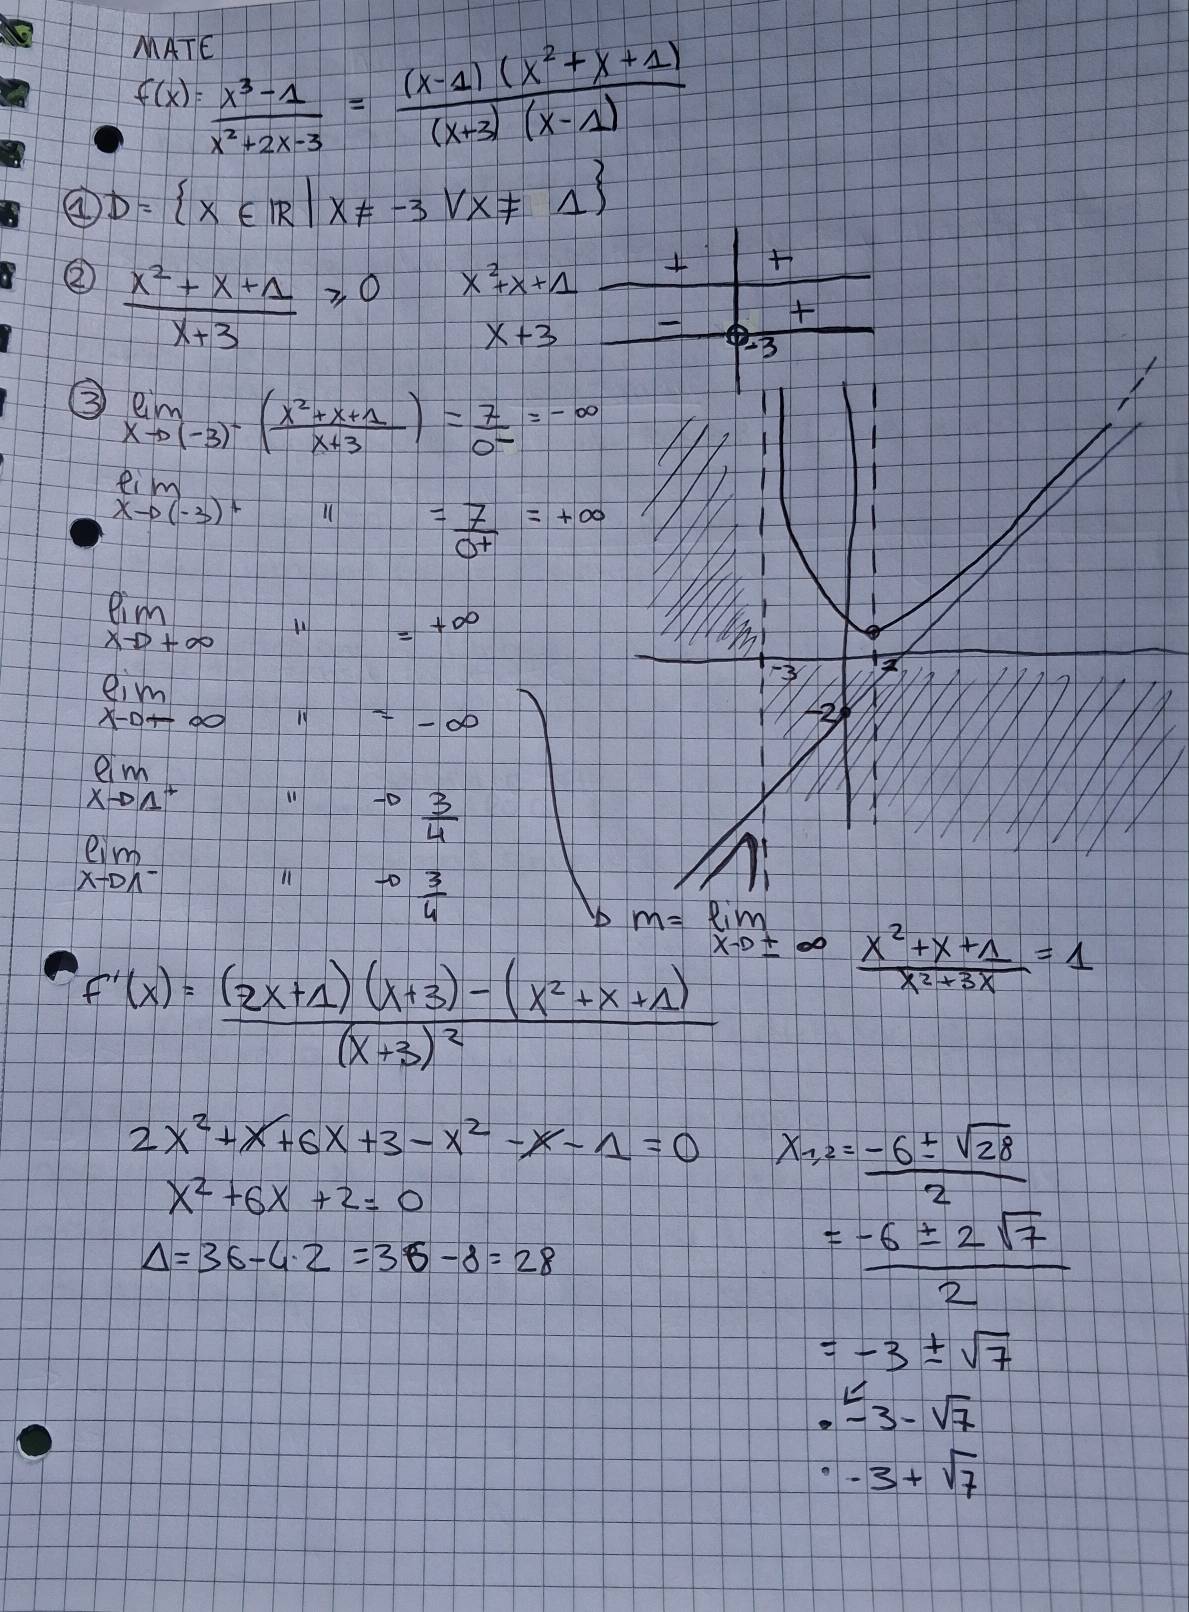 MATE
f(x) = x³-1 / x²+2x-3 = (x-1)(x²+x+1) / (x+3)(x-1)
① D = {x ∈ ℝ | x ≠ -3 ∨ x ≠ 1}
② x²+x+1 / x+3 ⩾ 0 x²+x+1 + +
x+3 - +
-3
③ lim x→(-3)⁻ (x²+x+1 / x+3) = 7/0⁻ = -∞
lim x→(-3)⁺ " = 7/0⁺ = +∞
lim x→+∞ " = +∞
lim x→-∞ " = -∞
lim x→1⁺ " → 3/4
lim x→1⁻ " → 3/4
-3
-2
m = lim x→±∞ x²+x+1 / x²+3x = 1
f'(x) = (2x+1)(x+3)-(x²+x+1) / (x+3)²
2x²+x+6x+3-x²-x-1=0
x²+6x+2=0
Δ=36-4·2=36-8=28
x₁,₂ = -6±√28 / 2
= -6±2√7 / 2
= -3±√7
· -3-√7
· -3+√7